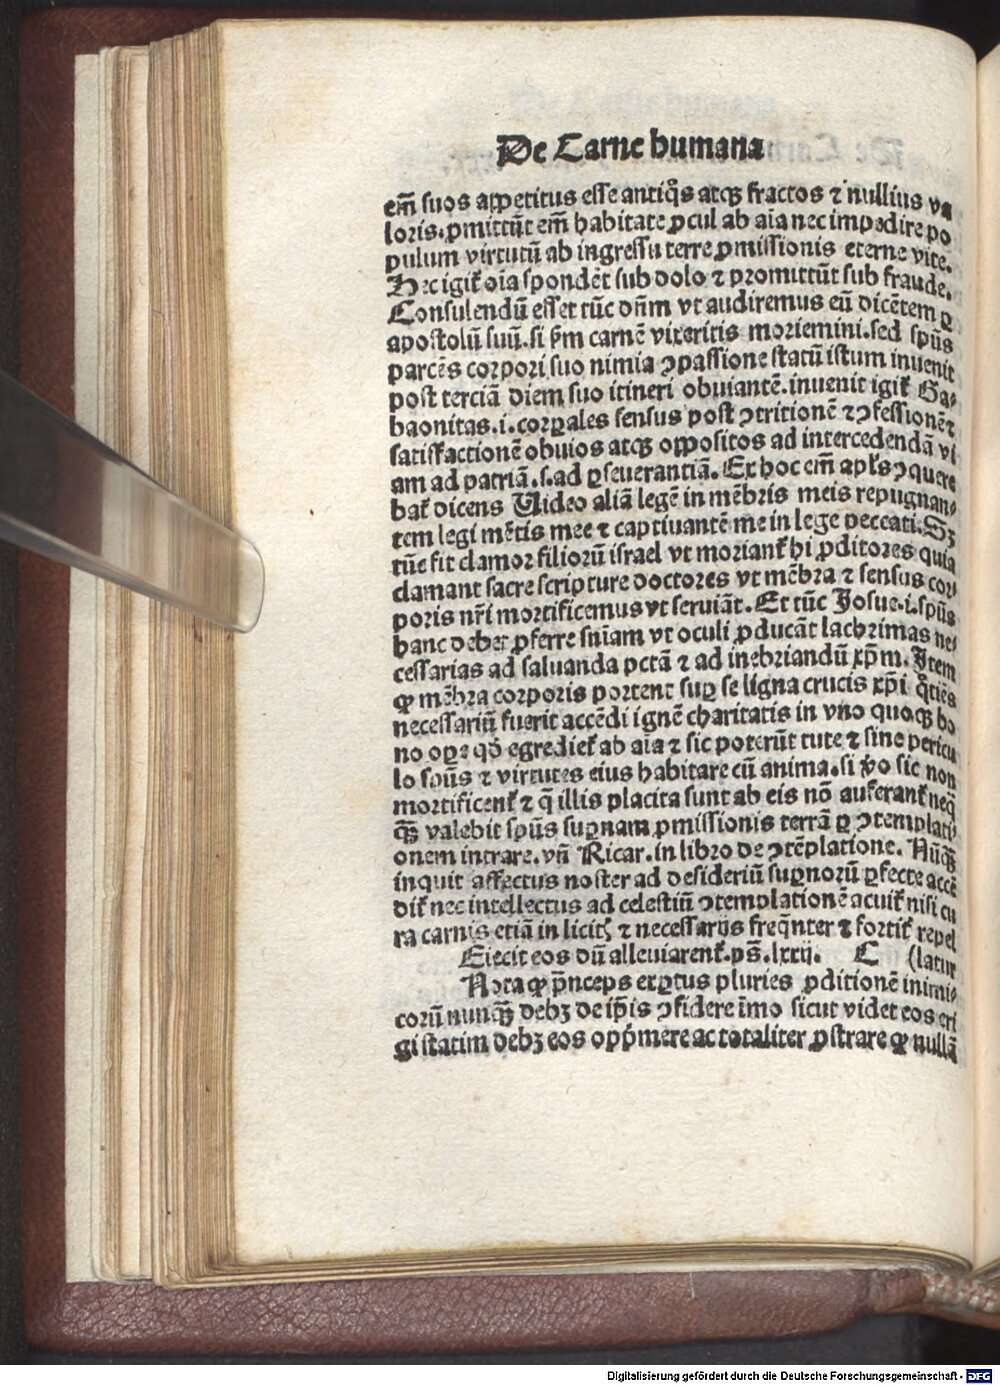 De Carne humana
em̄ suos appetitus esse antiq̄s atqꝫ fractos ⁊ nullius va
loris. ꝓmittūt em̄ habitate ꝓcul ab aīa nec impedire po
pulum virtutū ab ingressu terre ꝓmissionis eterne vite.
Hec igit̄ oīa spondēt sub dolo ⁊ promittūt sub fraude.
Consulendū esset tūc dn̄m vt audiremus eū dicētem ꝑ
apostolū suū. si ẜm carnē vixeritis moriemini. sed spūs
parcēs corpori suo nimia ꝯpassione statū istum inuenit
post terciā diem suo itineri obuiantē. inuenit igit̄ Ga⸗
baonitas .i. corꝑales sensus post ꝯtritionē ⁊ ꝯfessionē ⁊
satisfactionē obuios atqꝫ oppositos ad intercedendā vi
am ad patriā .s. ad ꝑseuerantiā. Ex hoc em̄ apl̄s ꝯquere
bat̄ dicens Uideo aliā legē in mēbris meis repugnan⸗
tem legi mētis mee ⁊ captiuantē me in lege peccati. Sꝫ
tūc fit clamor filiorū israel vt moriant̄ hi ꝓditores quia
clamant sacre scripture doctores vt mēbra ⁊ sensus cor⸗
poris nr̄i mortificemus vt seruiāt. Et tūc Josue .i. spūs
hanc debet ꝓferre sn̄iam vt oculi ꝓducāt lachrimas ne⸗
cessarias ad saluanda pctā ⁊ ad inebriandū xp̄m. Item
ꝙ mēbra corporis portent suꝑ se ligna crucis xp̄i q̊tiēs
necessariū fuerit accēdi ignē charitatis in vno quoqꝫ bo
no oꝑe qd̄ egrediet̄ ab aīa ⁊ sic poterūt tute ⁊ sine pericu
lo spūs ⁊ virtutes eius habitare cū anima. si ṽo sic non
mortificent̄ ⁊ q̄ illis placita sunt ab eis nō auferant̄ neq̄
qꝫ̄ valebit spūs suꝑnam ꝓmissionis terrā ꝑ ꝯtemplati⸗
onem intrare. vn̄ Ricar. in libro de ꝯtēplatione. Nūqꝫ̄
inquit affectus noster ad desideriū suꝑnorū ꝑfecte accē
dit̄ nec intellectus ad celestiū ꝯtemplationē acuit̄ nisi cu
ra carnis etiā in licitꝭ ⁊ necessarijs freq̄nter ⁊ fortit̄ repel
Eiecit eos dū alleuiarent̄. ps̄. lxxij. C (latur
Nota ꝙ p̄nceps exꝑtus pluries ꝓditionē inimi⸗
corū nunqꝫ̄ debꝫ de ip̄is ꝯfidere īmo sicut videt eos eri
gi statim debꝫ eos opp̄mere ac totaliter ꝓstrare ꝙ nullā
Digitalisierung gefördert durch die Deutsche Forschungsgemeinschaft - DFG